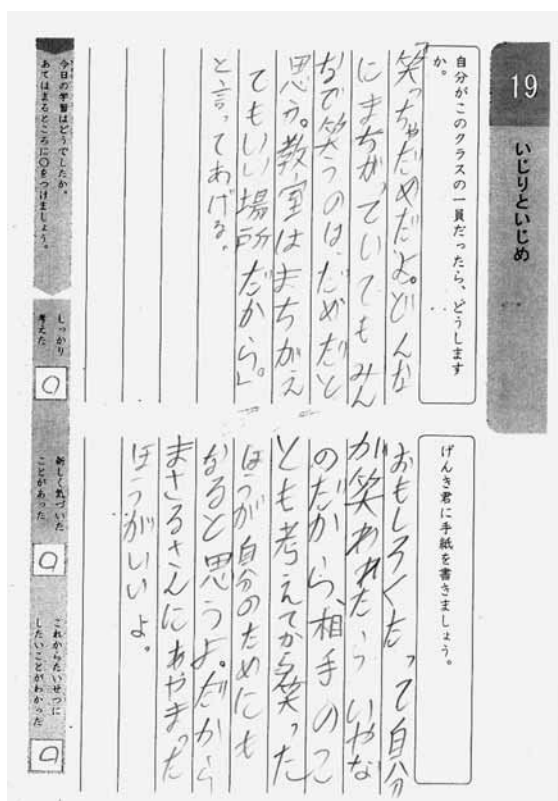 19
いじりといじめ
自分がこのクラスの一員だったら、どうします
か。
「笑っちゃだめだよ。どんな
にまちがっていてもみん
なで笑うのは、だめだと
思う。教室はまちがえ
てもいい場所だから。」
と言ってあげる。
げんき君に手紙を書きましょう。
おもしろくたって自分
が笑われたらいやな
のだから、相手のこ
とも考えてから笑った
ほうが自分のためにも
なると思うよ。だから
まさるさんにあやまった
ほうがいいよ。
今日の学習はどうでしたか。
あてはまるところに○をつけましょう。
しっかり
考えた
○
新しく気づいた
ことがあった
○
これからたいせつに
したいことがわかった
○